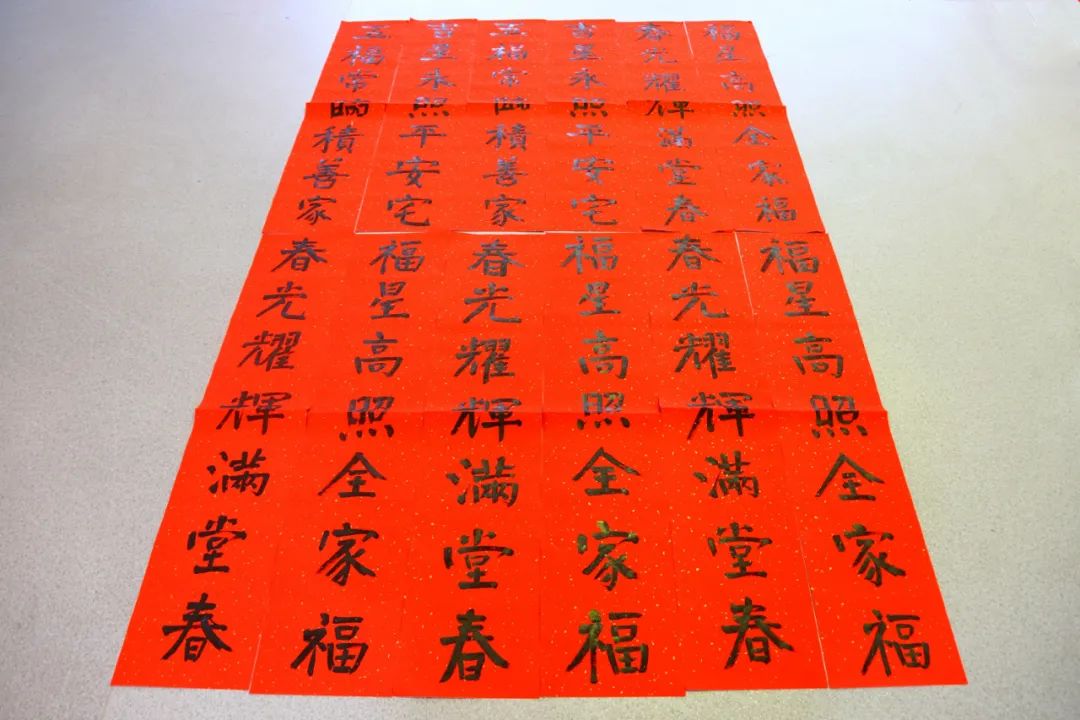 福星高照全家福
春光耀輝滿堂春
吉星永照平安宅
五福常臨積善家
吉星永照平安宅
五福常臨積善家
福星高照全家福
春光耀輝滿堂春
福星高照全家福
春光耀輝滿堂春
福星高照全家福
春光耀輝滿堂春